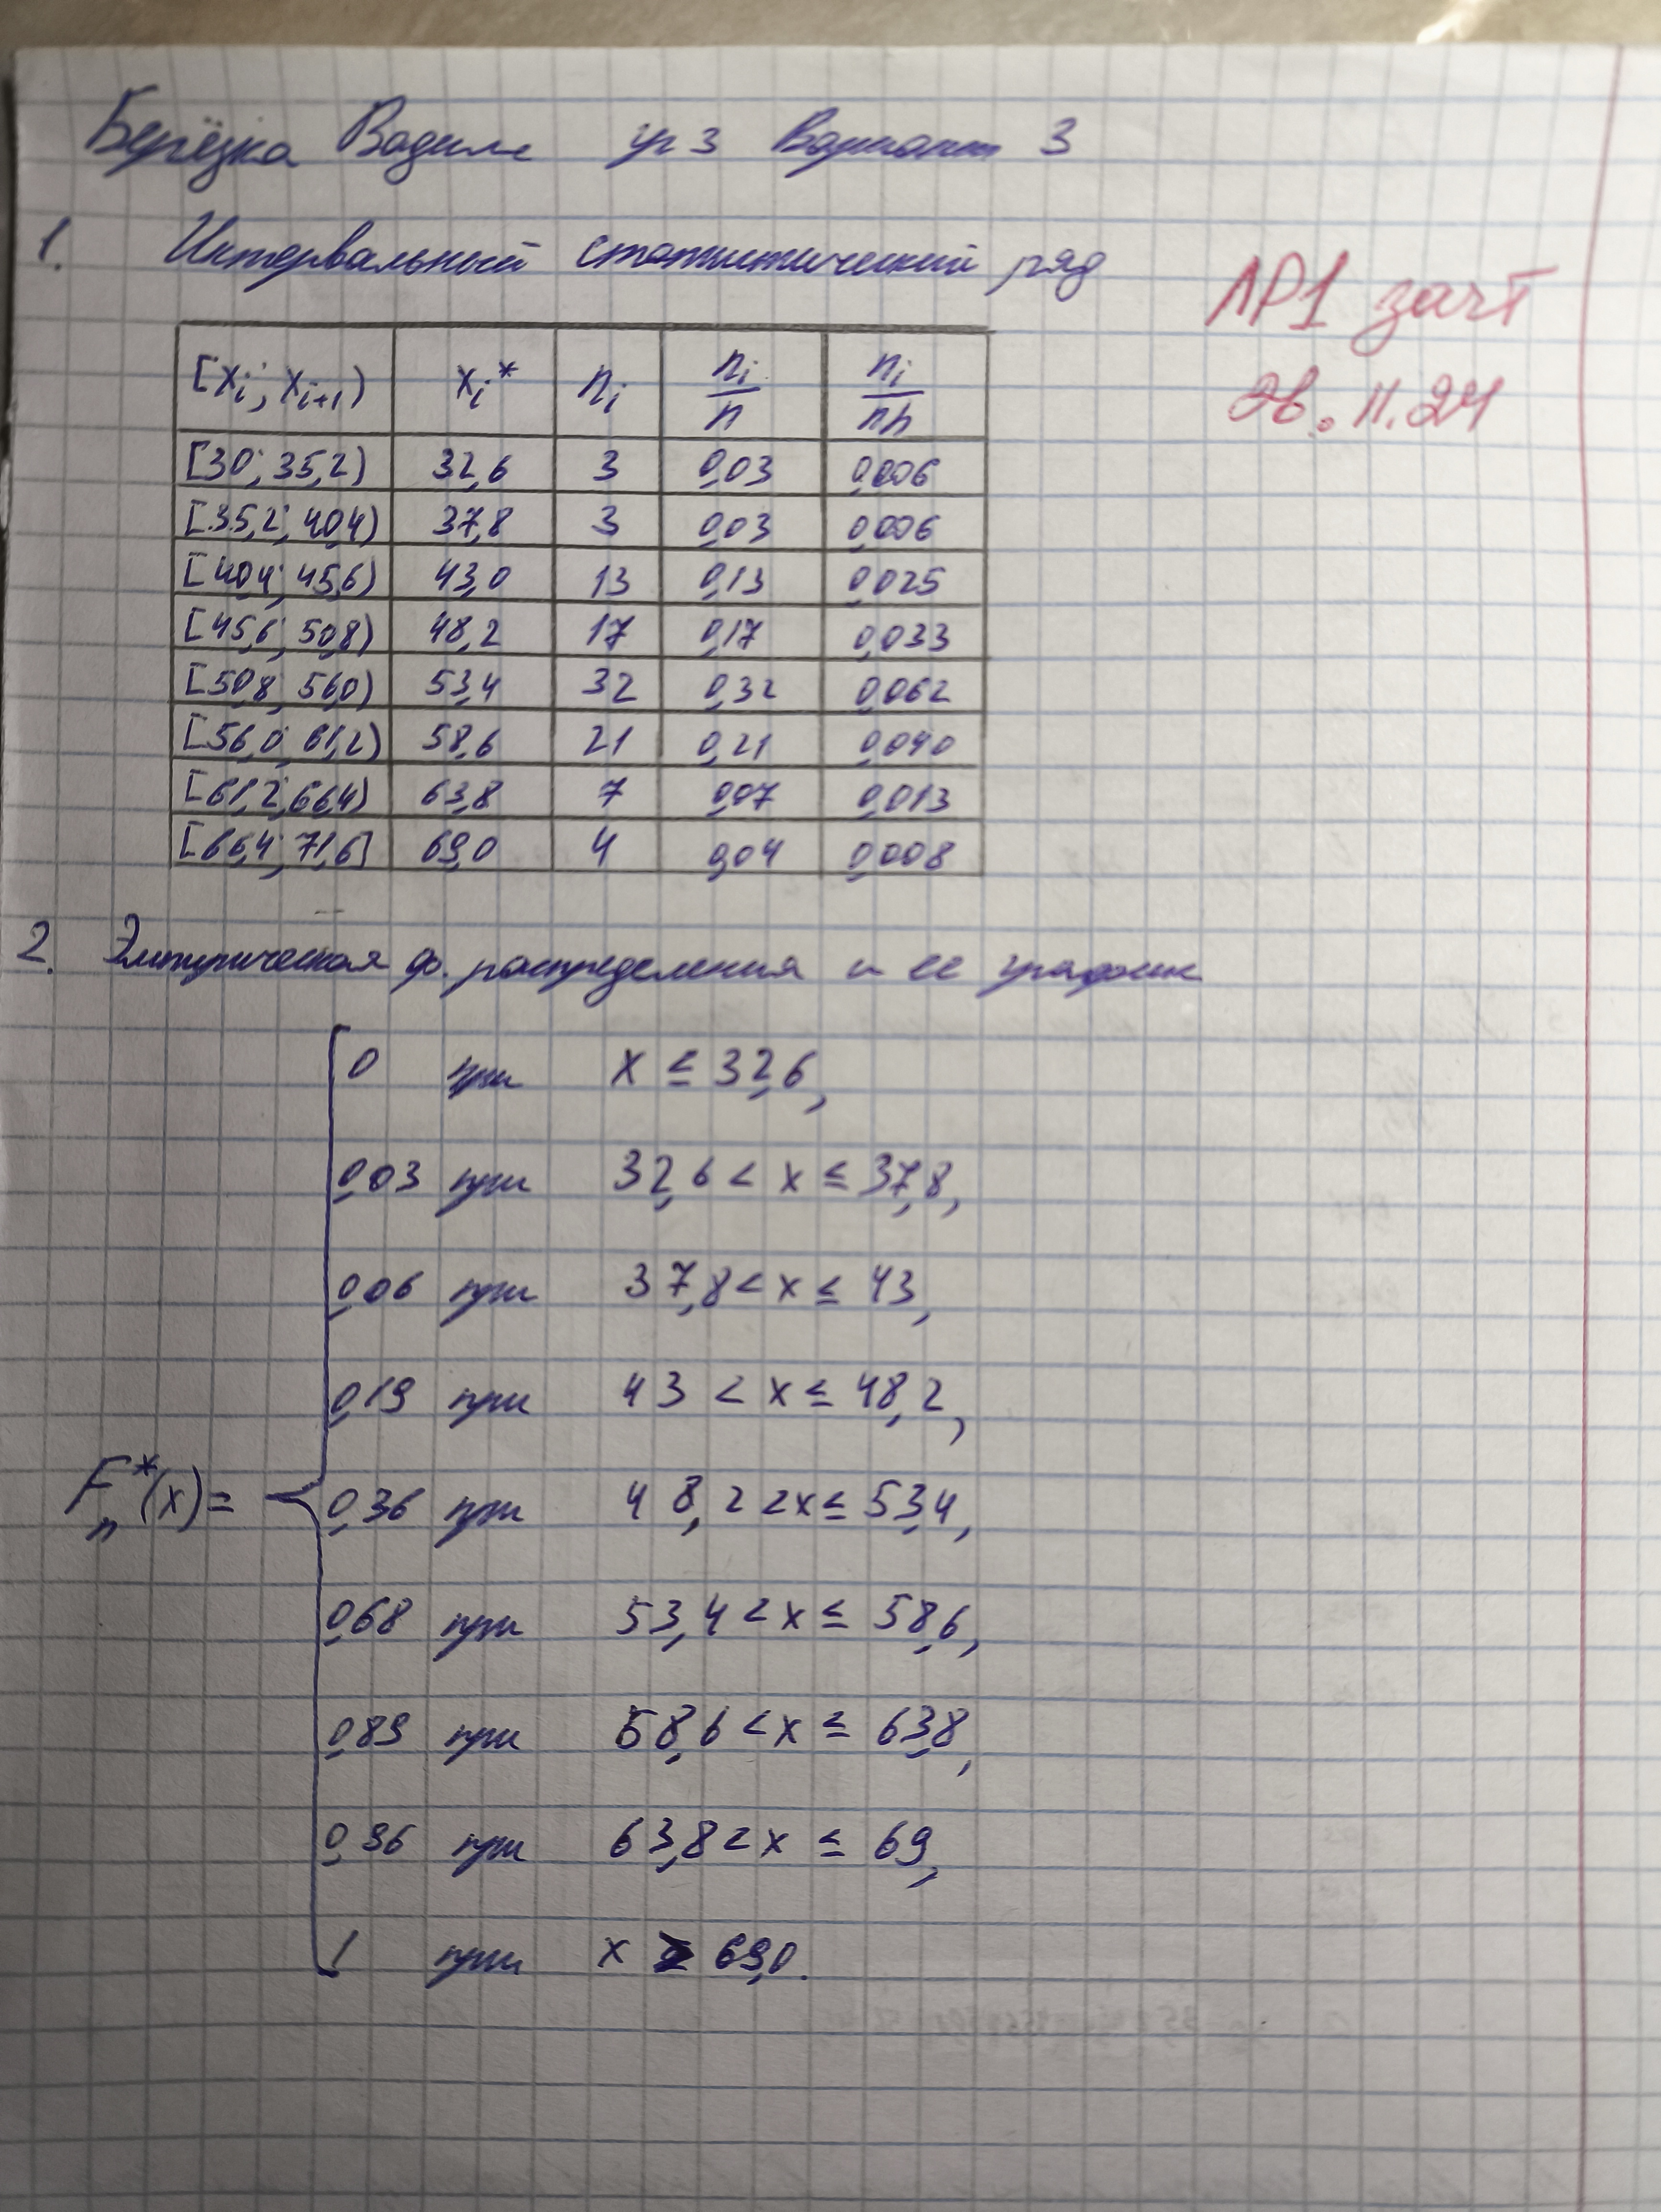 Берёзка Вадим гр 3 Вариант 3
1. Интервальный статистический ряд
ЛР1 зачт
26.11.24
[xᵢ; xᵢ₊₁) xᵢ* nᵢ nᵢ/n nᵢ/nh
[30; 35,2) 32,6 3 0,03 0,006
[35,2; 40,4) 37,8 3 0,03 0,006
[40,4; 45,6) 43,0 13 0,13 0,025
[45,6; 50,8) 48,2 17 0,17 0,033
[50,8; 56,0) 53,4 32 0,32 0,062
[56,0; 61,2) 58,6 21 0,21 0,040
[61,2; 66,4) 63,8 7 0,07 0,013
[66,4; 71,6] 69,0 4 0,04 0,008
2. Эмпирическая ф. распределения и ее график
0 при x ≤ 32,6,
0,03 при 32,6 < x ≤ 37,8,
0,06 при 37,8 < x ≤ 43,
0,19 при 43 < x ≤ 48,2,
Fₙ*(x) = 0,36 при 48,2 < x ≤ 53,4,
0,68 при 53,4 < x ≤ 58,6,
0,89 при 58,6 < x ≤ 63,8,
0,96 при 63,8 < x ≤ 69,
1 при x > 69,0.